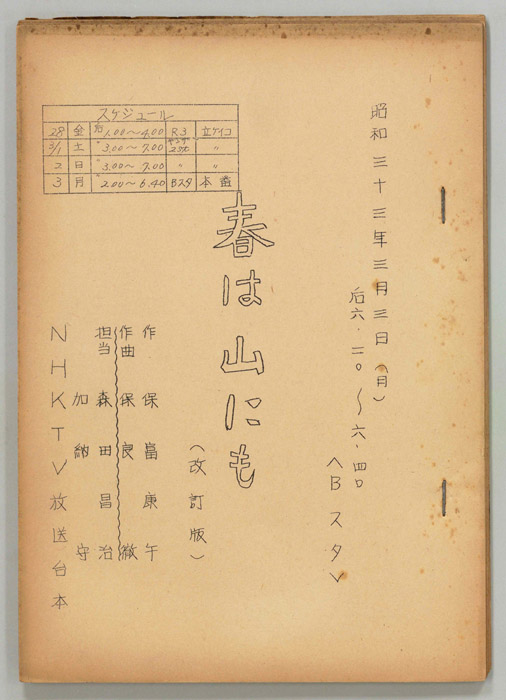 昭和三十三年三月三日(月)
后六・二〇〜六・四〇
<Bスタ>
春は山にも
(改訂版)
作 保富康午
作曲 保良徹
担当 森田昌治
加納守
NHKTV放送台本
スケジュール
28 金 后1.00〜4.00 R3 立ケイコ
3/1 土 〃3.00〜7.00 〃
2 日 〃3.00〜7.00 〃 〃
3 月 〃2.00〜6.40 Bスタ 本番